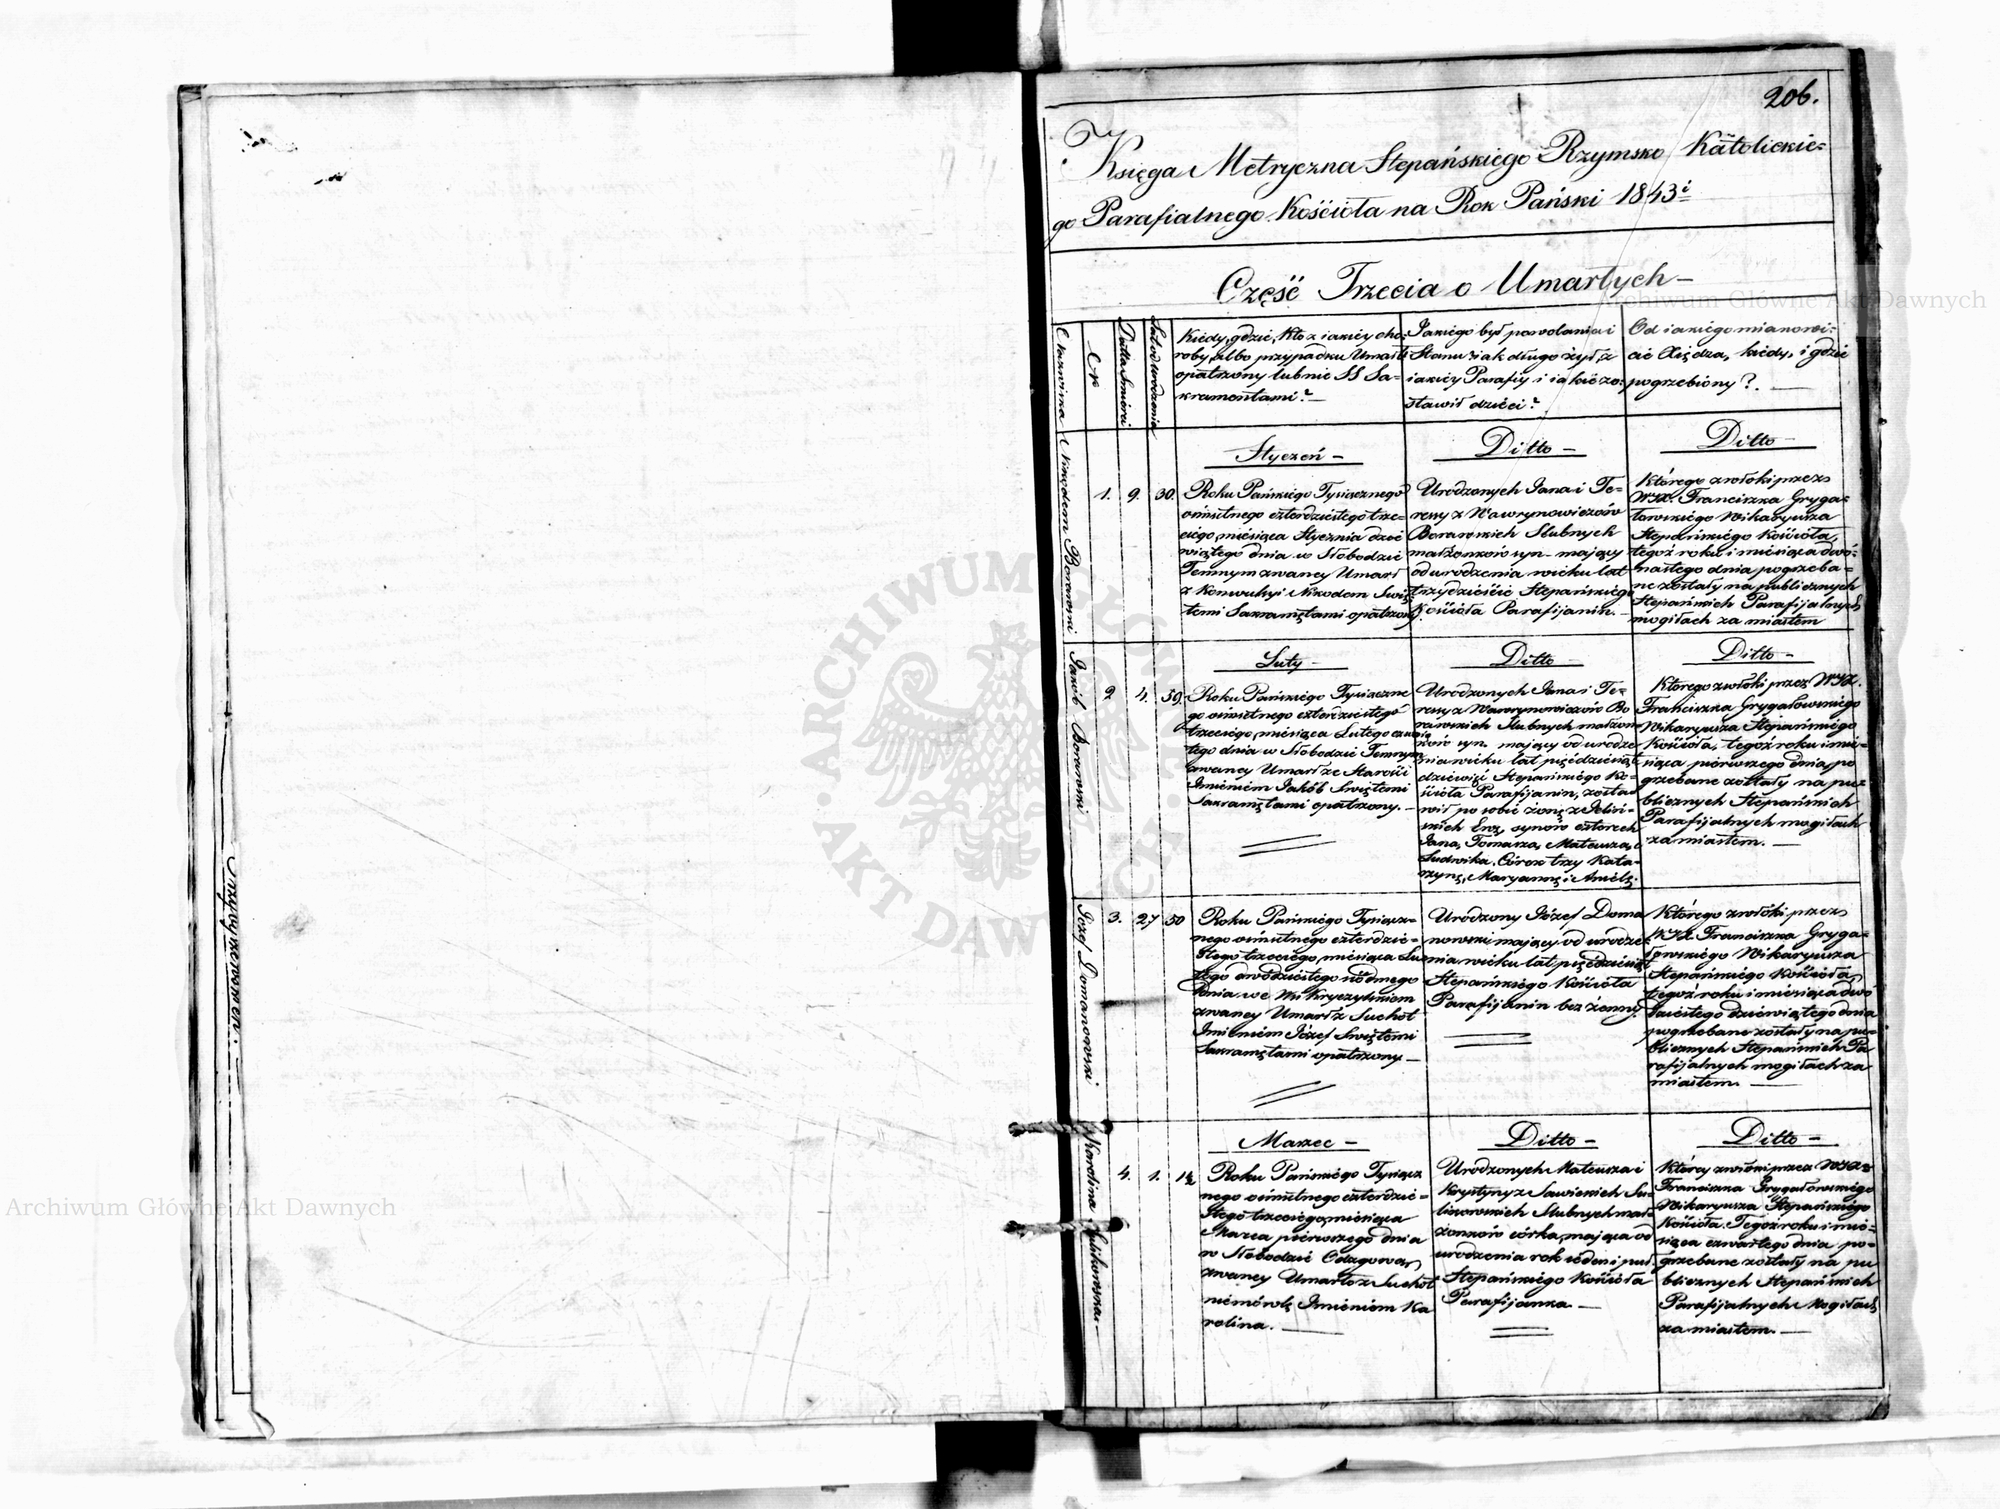 206.
Księga Metryczna Stepańskiego Rzymsko Katolickie-
go Parafialnego Kościoła na Rok Pański 1843i
Część Trzecia o Umarłych
Nazwiska
N
Datta Śmierci
Lat od urodzenia
Kiedy, gdzie, kto z iakiéy cho-
roby, albo przypadku Umarł
opatrzony lub nie SS Sa-
kramentami?
Jakiego był powołania i
Stanu iak długo żył, z
iakiéy Parafiy i iakie zo-
stawił dzieci?
Od iakiego mianowi-
cie Xiędza, kiedy, i gdzie
pogrzebiony?
Nikodem Borawski
1. 9. 30.
Styczeń
Roku Pańskiego Tysiącznego
ośmsetnego czterdziestego trze-
ciego, miesiąca Stycznia dzie
wiątego dnia w Słobodzie
Temnym zwaney Umarł
z Konwulsyi Nikodem Świę
temi Sakramętami opatrzony
Ditto
Urodzonych Jana i Te-
ressy z Wawrynowiczów
Borawskich Slubnych
małżonków syn mający
od urodzenia wieku lat
trzydzieście Stepańskiego
Kościoła Parafijanin.
Ditto
Którego zwłoki przez
WJX. Franciszka Gryga-
łowskiego Wikaryusza
Stepańskiego Kościoła,
tegoż roku i miesiąca dwó-
nastego dnia pogrzeba-
ne zostały na publicznych
Stepańskich Parafijalnych
mogiłach za miastem
Jakób Borawski
2 4. 59.
Luty
Roku Pańskiego Tysiączne
go ośmsetnego czterdziestego
trzeciego, miesiąca Lutego czwar
tego dnia w Słobodzie Temnym
zwaney Umarł ze Starości
Imieniem Jakób Świętemi
Sakramętami opatrzony.
Ditto
Urodzonych Jana i Te-
ressy z Wawrynowiczów Bo
rawskich Slubnych małżon
ków syn. mający od urodze
nia wieku lat pięćdziesiąt
dziewięć Stepańskiego Ko-
ścioła Parafijanin, zosta
wił po sobie żonę z
synów czterech
Jana, Tomasza, Mateusza,
Ludwika. Córek trzy Kata-
rzynę, Maryannę i Anielę.
Ditto
Którego zwłoki przez WJX.
Franciszka Grygałowskiego
Wikaryusza Stepańskiego
Kościoła, tegoż roku i mie-
siąca pierwszego dnia, po
grzebane zostały na pu-
blicznych Stepańskich
Parafijalnych mogiłach
za miastem.
Józef Domanowski
3. 27 50
Roku Pańskiego Tysiącz-
nego ośmsetnego czterdzie-
stego trzeciego, miesiąca Lu
tego dwódziestego siódmego
dnia we Wsi
zwaney Umarł z Suchot
Imieniem Józef Świętemi
Sakramętami opatrzony
Urodzony Józef Doma
nowski mający od urodze-
nia wieku lat pięćdziesiąt
Stepańskiego Kościoła
Parafijanin bez żenny.
Którego zwłoki przez
WJX. Franciszka Gryga-
łowskiego Wikaryusza
Stepańskiego Kościoła,
tegoż roku i miesiąca dwó
dziestego dziewiątego dnia
pogrzebane zostały na pu-
blicznych Stepańskich Pa
rafijalnych mogiłach za
miastem.
Karolina
4. 1. 1½
Marzec
Roku Pańskiego Tysiącz
nego ośmsetnego czterdzie-
stego trzeciego, miesiąca
Marca pierwszego dnia
w Słobodzie
zwaney Umarła z Suchot
niemówlę Imieniem Ka
rolina.
Ditto
Urodzonych Mateusza i
Krystyny z Sawickich
Slubnych mał-
żonków córka, mająca od
urodzenia rok ieden i puł,
Stepańskiego Kościoła
Parafijanka
Ditto
Któréy zwłoki przez WJX.
Franciszka Grygałowskiego
Wikaryusza Stepańskiego
Kościoła. Tegoż roku i mie-
siąca czwartego dnia po-
grzebane zostały na pu
blicznych Stepańskich
Parafijalnych Mogiłach
za miastem.
Archiwum Główne Akt Dawnych
Archiwum Główne Akt Dawnych
ARCHIWUM GŁÓWNE
AKT DAWNYCH